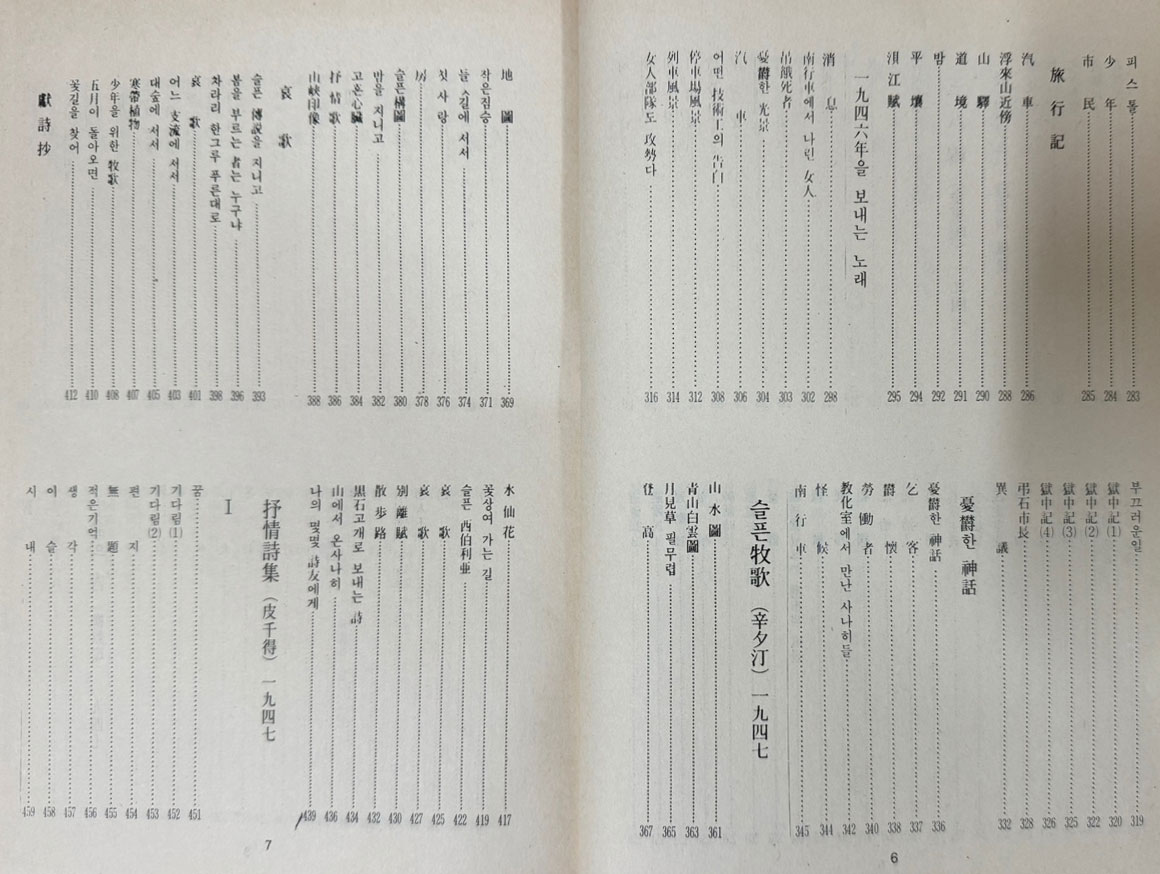 피스톨 283
少年 284
市民 285
旅行記
汽車 286
浮來山近傍 288
山驛 290
道境 291
밤 292
平壤 294
浿江賦 295
一九四六年을 보내는 노래
消息 298
南行車에서 나린 女人 302
吊餓死者 303
憂鬱한 光景 304
汽車 306
어떤 技術工의 告白 308
停車場風景 312
列車風景 314
女人部隊도 攻勢다 316
부끄러운일 319
獄中記(1) 320
獄中記(2) 322
獄中記(3) 325
獄中記(4) 326
弔石市長 328
異議 332
憂鬱한 神話
憂鬱한 神話 336
乞客 337
鬱懷 338
勞働者 340
敎化室에서 만난 사나히들 342
怪候 344
南行車 345
슬픈牧歌 (辛夕汀) 一九四七
山水圖 361
靑山白雲圖 363
月見草 필무렵 365
登高 367
6
地圖 369
작은짐승 371
늘 길에 서서 374
첫사랑 376
房 378
슬픈構圖 380
밤을 지니고 382
고운心臟 384
抒情歌 386
山峽印像 388
哀歌
슬픈 傳說을 지니고 393
봄을 부르는 者는 누구냐 396
차라리 한그루 푸른대로 398
哀歌 401
어느 支流에 서서 403
대숲에 서서 405
寒帶植物 407
少年을 위한 牧歌 408
五月이 돌아오면 410
꽃길을 찾어 412
獻詩抄
水仙花 417
꽃상여 가는 길 419
슬픈 西伯利亞 422
哀歌 425
別離賦 427
散步路 430
黑石고개로 보내는 詩 434
山에서 온사나히 436
나의 몇몇 詩友에게 439
抒情詩集 (皮千得) 一九四七
I
꿈 451
기다림(1) 452
기다림(2) 453
편지 454
無題 455
적은기억 456
생각 457
이슬 458
시내 459
7